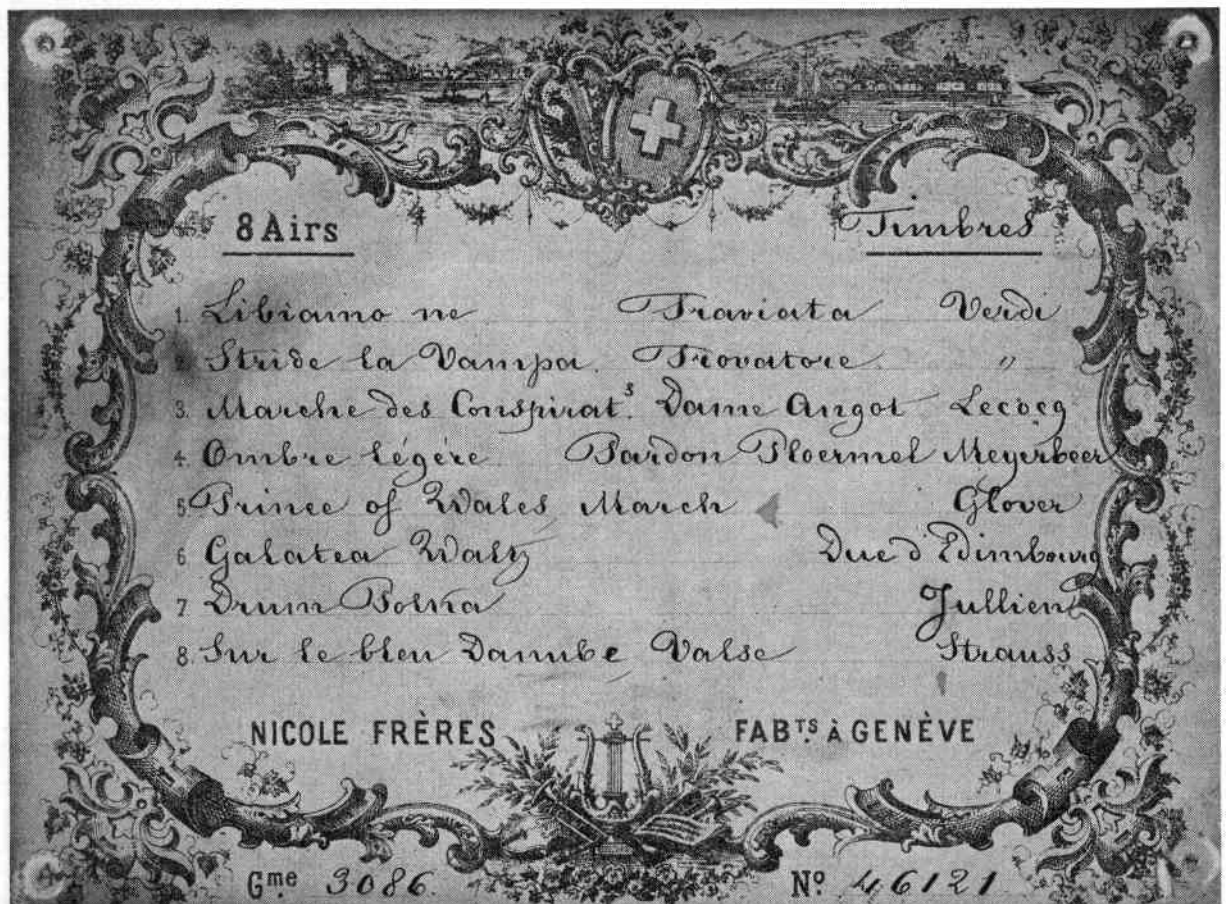 8 Airs Timbres
1. Libiamo ne Traviata Verdi
2 Stride la Vampa. Trovatore "
3. Marche des Conspirat.s Dame Angot Lecocq
4. Ombre légére Pardon Ploermel Meyerbeer
5 Prince of Wales March Glover
6 Galatea Waltz Duc d'Edimbourg
7 Drum Polka Jullien
8. Sur le bleu Danube Valse Strauss
NICOLE FRÈRES FABTS. À GENÈVE
Gme 3086. No. 46121